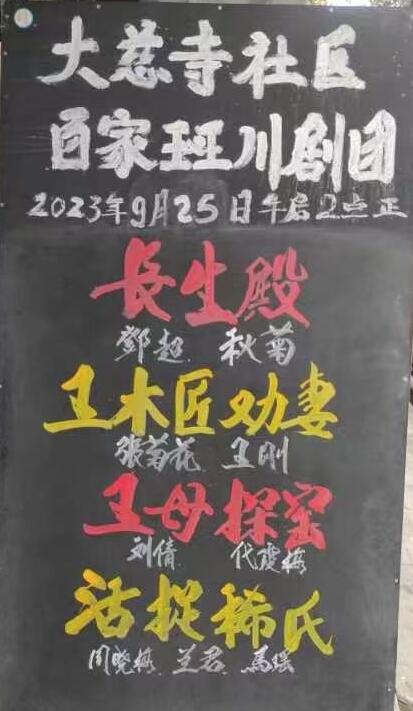 大慈寺社区
百家班川剧团
2023年9月25日午后2点正
長生殿
鄧超 秋菊
王木匠劝妻
張菊花 王刚
王母探窑
刘倩 代霞梅
活捉稀氏
周晓梅 兰君 馬瑶